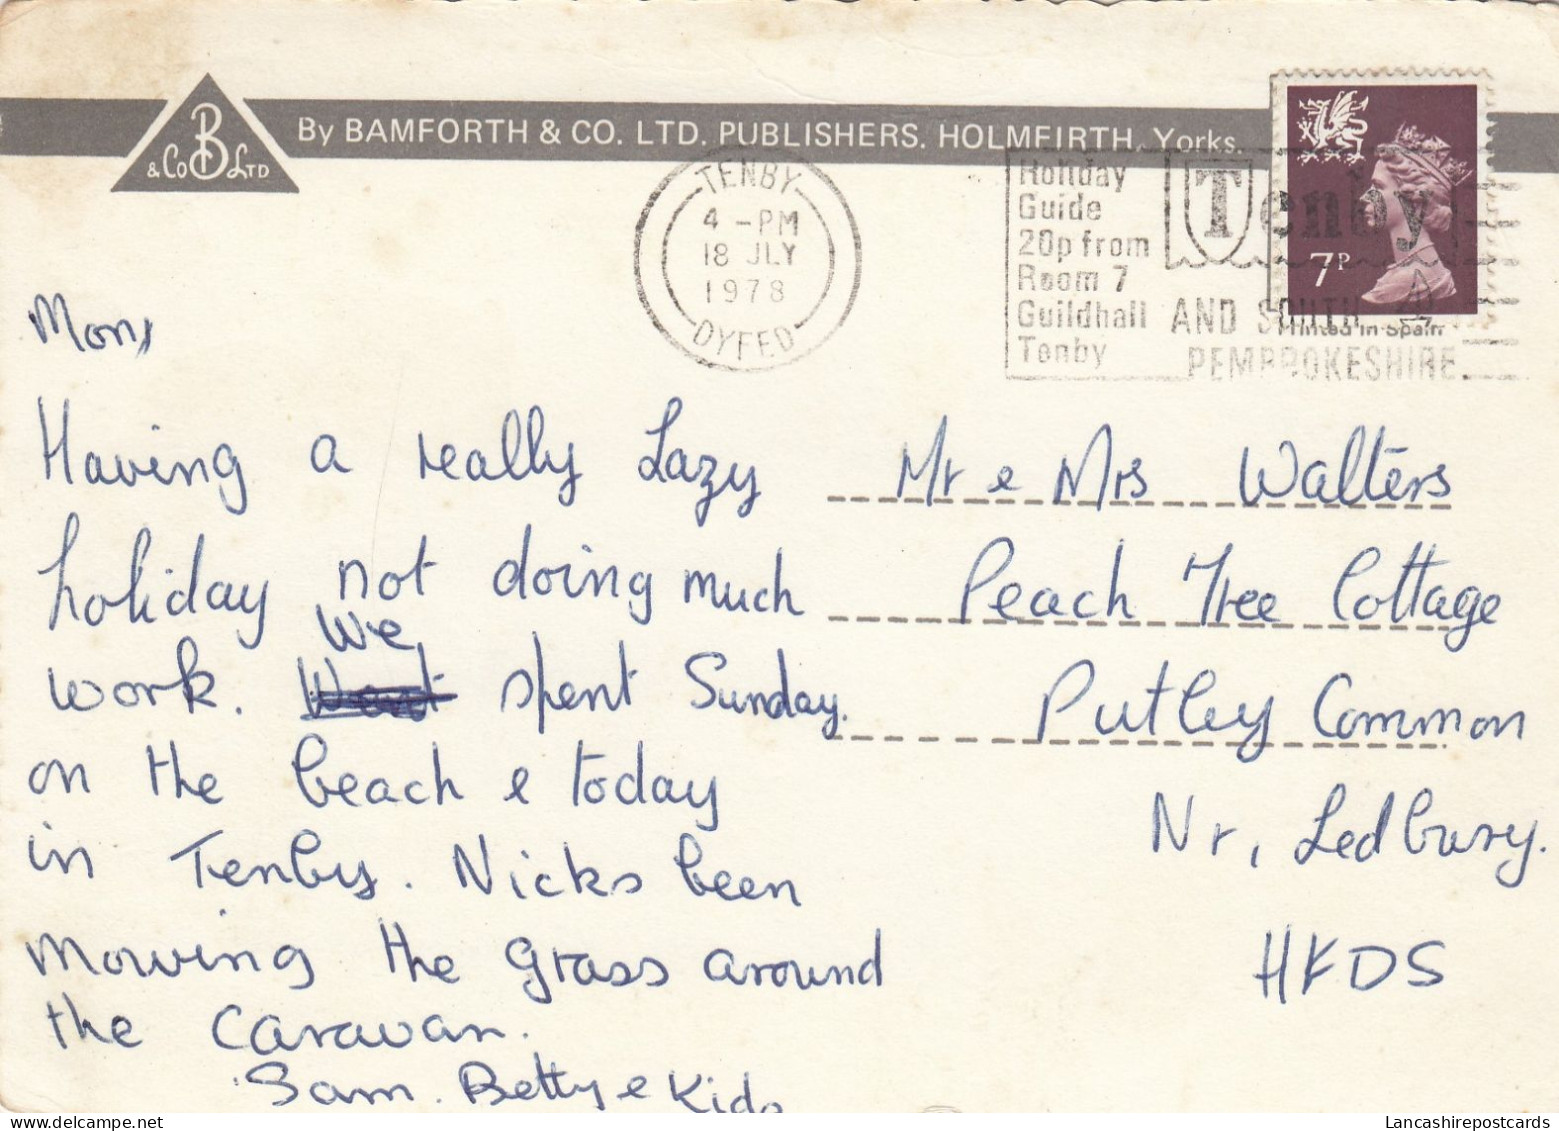 B & Co LTD
By BAMFORTH & CO. LTD. PUBLISHERS. HOLMFIRTH, Yorks.
TENBY
4 -PM
18 JLY
1978
DYFED
Holiday
Guide
20p from
Room 7
Guildhall
Tenby
Tenby
AND SOUTH
PEMBROKESHIRE
7P
Printed in Spain
Mon,
Having a really Lazy
holiday not doing much
We
work. Went spent Sunday.
on the beach & today
in Tenby. Nicks been
mowing the grass around
the caravan.
Sam. Betty & Kids
Mr & Mrs Walters
Peach Tree Cottage
Putley Common
Nr, Ledbury.
HFDS
Lancashirepostcards